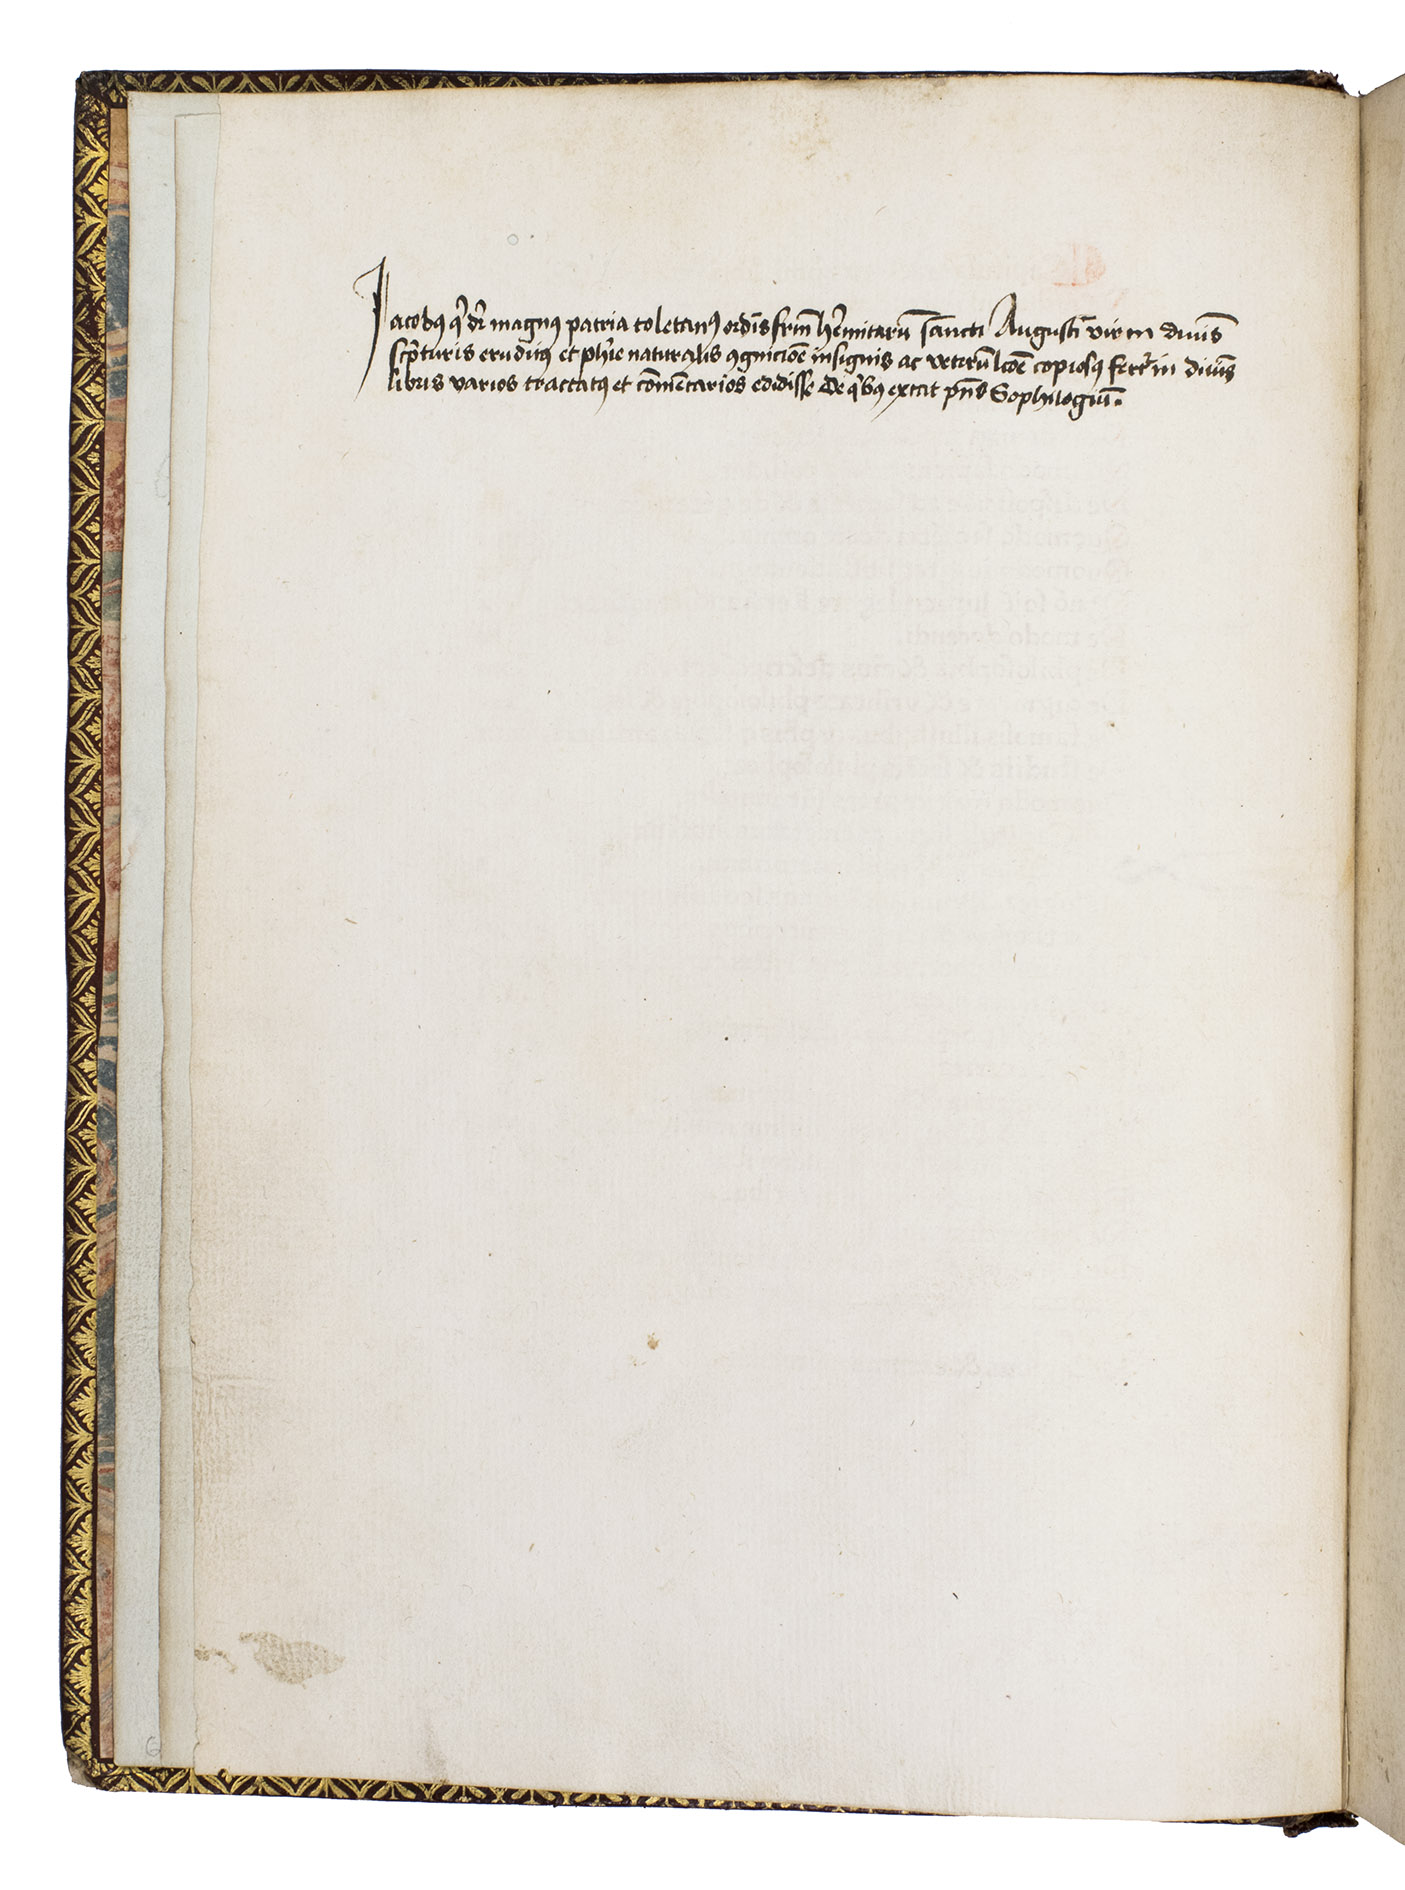 Jacobꝯ q̇ dr̄ magnꝯ patria toletanꝯ ordīs frm̄ hermitarū sancti Augusti vir in diuīs
scpturis eruditꝯ et phīe naturalis ꝯgnicioē insignis ac veterū lcōe copiosꝯ fert̄ in diuīs
libris varios tractatꝯ et cōmētarios edidisse de qͥbꝯ extat pn̄s Sophilogiū.